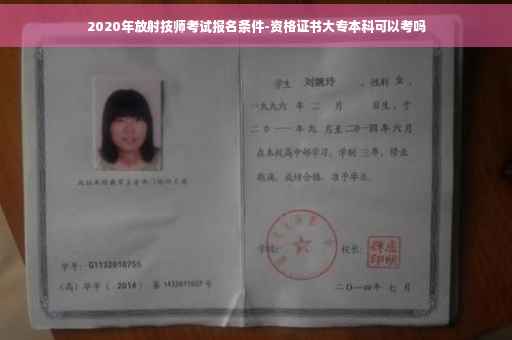 2020年放射技师考试报名条件-资格证书大专本科可以考吗
学生 刘婉玲 ,性别 女 ,
一九九六 年 二 月 日生,于
二〇一一年九 月至二〇一四年六月
在本校高中部学习,学制 三年,修业
期满,成绩合格,准予毕业。
学号: G1132010755
(高)毕字( 2014 )第 1432011027 号
学校:
校长:
二〇一四年 七 月